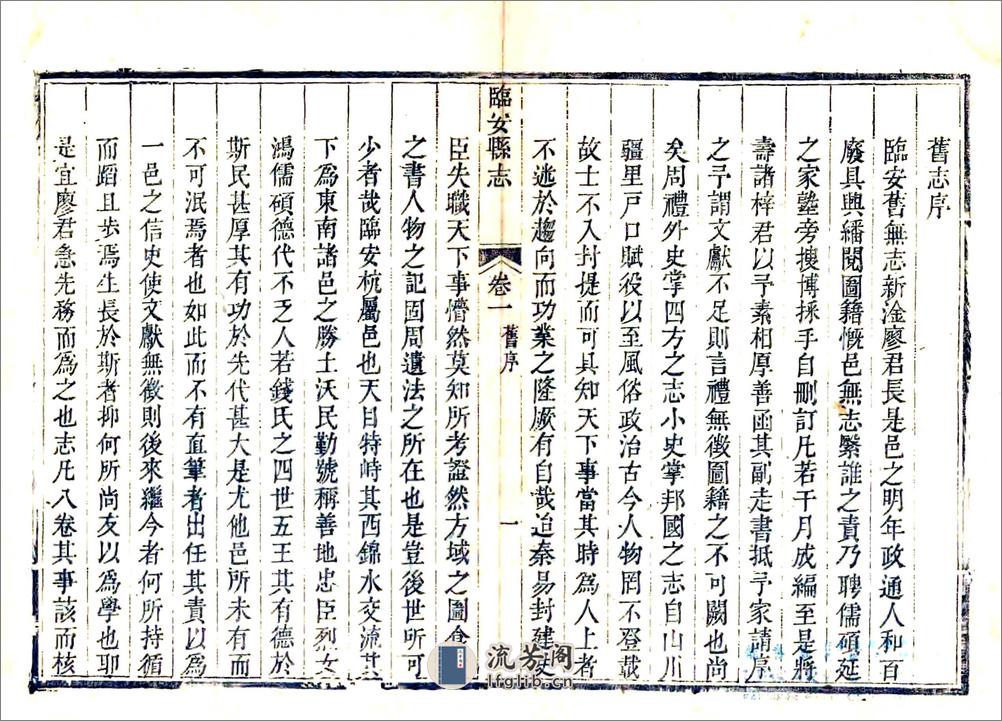 舊志序
臨安舊無志新淦廖君長是邑之明年政通人和百
廢具興繙閱圖籍慨邑無志繄誰之責乃聘儒碩延
之家塾旁搜博採手自刪訂凡若干月成編至是將
壽諸梓君以予素相厚善函其副走書抵予家請序
之予謂文獻不足則言禮無徵圖籍之不可闕也尚
矣周禮外史掌四方之志小史掌邦國之志自山川
疆里戸口賦役以至風俗政治古今人物罔不登載
故士不入封提而可具知天下事當其時為人上者
不迯於趨向而功業之隆厥有自哉迨秦易封建史
臨安縣志
卷一
舊序
一
臣失職天下事懵然莫知所考證然方域之圖食
之書人物之記固周遺法之所在也是豈後世所可
少者哉臨安杭屬邑也天目特峙其西錦水交流其
下為東南諸邑之勝土沃民勤號稱善地忠臣烈女
鴻儒碩德代不乏人若錢氏之四世五王其有德於
斯民甚厚其有功於先代甚大是尤他邑所未有而
不可泯焉者也如此而不有直筆者出任其責以為
一邑之信史使文獻無徵則後來繼今者何所持循
而蹈且步焉生長於斯者抑何所尚友以為學也耶
是宜廖君急先務而為之也志凡八卷其事該而核
流芳阁
lfglib.cn